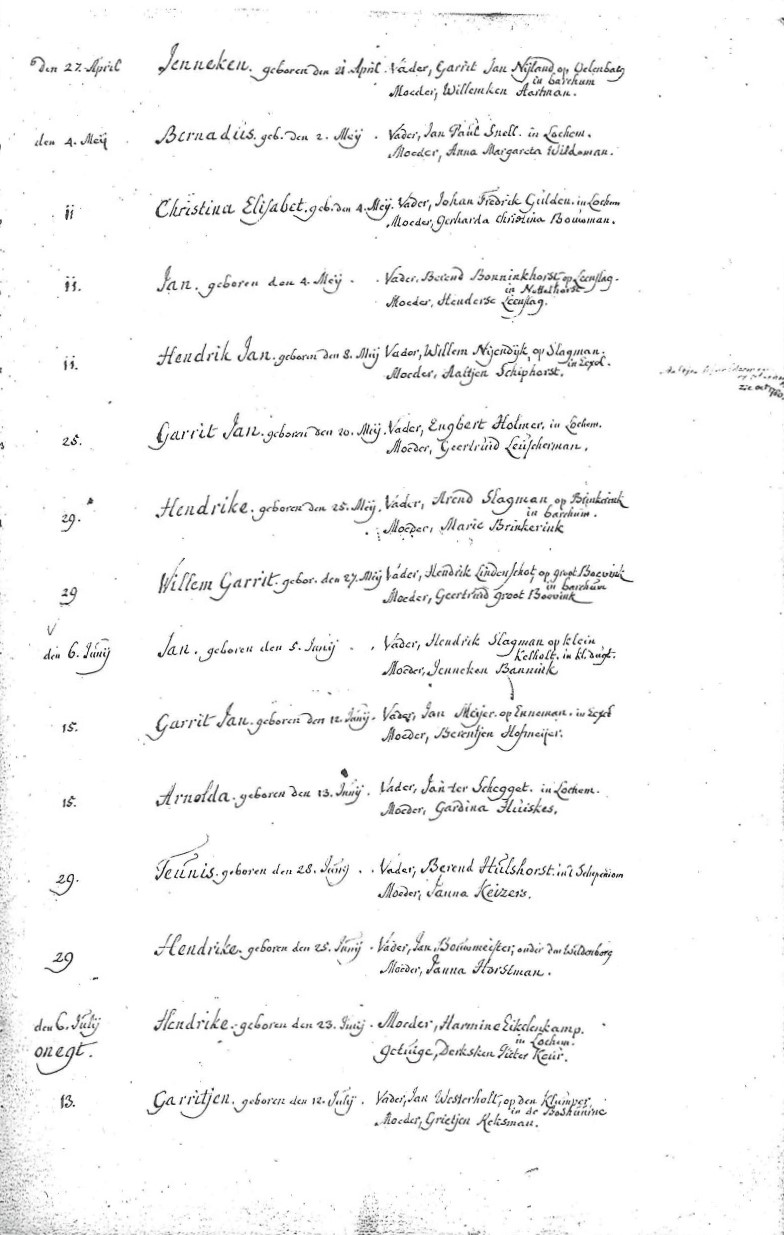 den 27. April Jenneken. geboren den 21 April. Vader, Garrit Jan Nijland op Oelenbarg
in barchum
Moeder, Willemken Hartman.
den 4. Meij Bernadus. geb. den 2. Meij. Vader, Jan Paul Snell. in Lochem.
Moeder, Anna Margareta Wildeman.
ii Christina Elisabet. geb. den 4. Meij. Vader, Johan Fredrik Gulden. in Lochem
Moeder, Gerharda Christina Bouwman.
ii. Jan. geboren den 4. Meij. Vader, Berend Bonninkhorst op Leenslag.
in Nettelhorst
Moeder, Henderse Leenslag.
ii. Hendrik Jan. geboren den 8. Meij Vader, Willem Nijendijk, op Slagman.
in Exel.
Moeder, Aaltjen Schiphorst.
zie oct
25. Garrit Jan. geboren den 20. Meij. Vader, Engbert Holmer. in Lochem.
Moeder, Geertruid Leuscherman.
29. Hendrike. geboren den 25. Meij. Vader, Arend Slagman op Brinkerink
in barchum.
Moeder, Marie Brinkerink
29 Willem Garrit. gebor. den 27. Meij Vader, Hendrik Lindenschot, op groot Boevink
in barchum
Moeder, Geertruid groot Boevink
den 6. Junij Jan. geboren den 5. Junij. Vader, Hendrik Slagman op klein
Kelholt. in kl. dugt.
Moeder, Jenneken Bannink
15. Garrit Jan. geboren den 12. Junij. Vader, Jan Meijer. op Enneman. in Exel
Moeder, Berentjen Hofmeijer.
15. Arnolda. geboren den 13. Junij. Vader, Jan ter Schegget. in Lochem.
Moeder, Gardina Huiskes.
29. Teunis. geboren den 28. Junij. Vader, Berend Hulshorst. in't Schependom
Moeder, Janna Keizers.
29 Hendrike. geboren den 25. Junij. Vader, Jan Bouwmeister, onder den Wildenborg
Moeder, Janna Horstman.
den 6. Julij Hendrike. geboren den 23. Junij. Moeder, Harmine Eikelenkamp.
in Lochem.
onegt. getuige, Derksken Pieter Keur.
13. Garritjen. geboren den 12. Julij. Vader, Jan Westerholt, op den Klumper.
in de Boshuirne
Moeder, Grietjen Keksman.